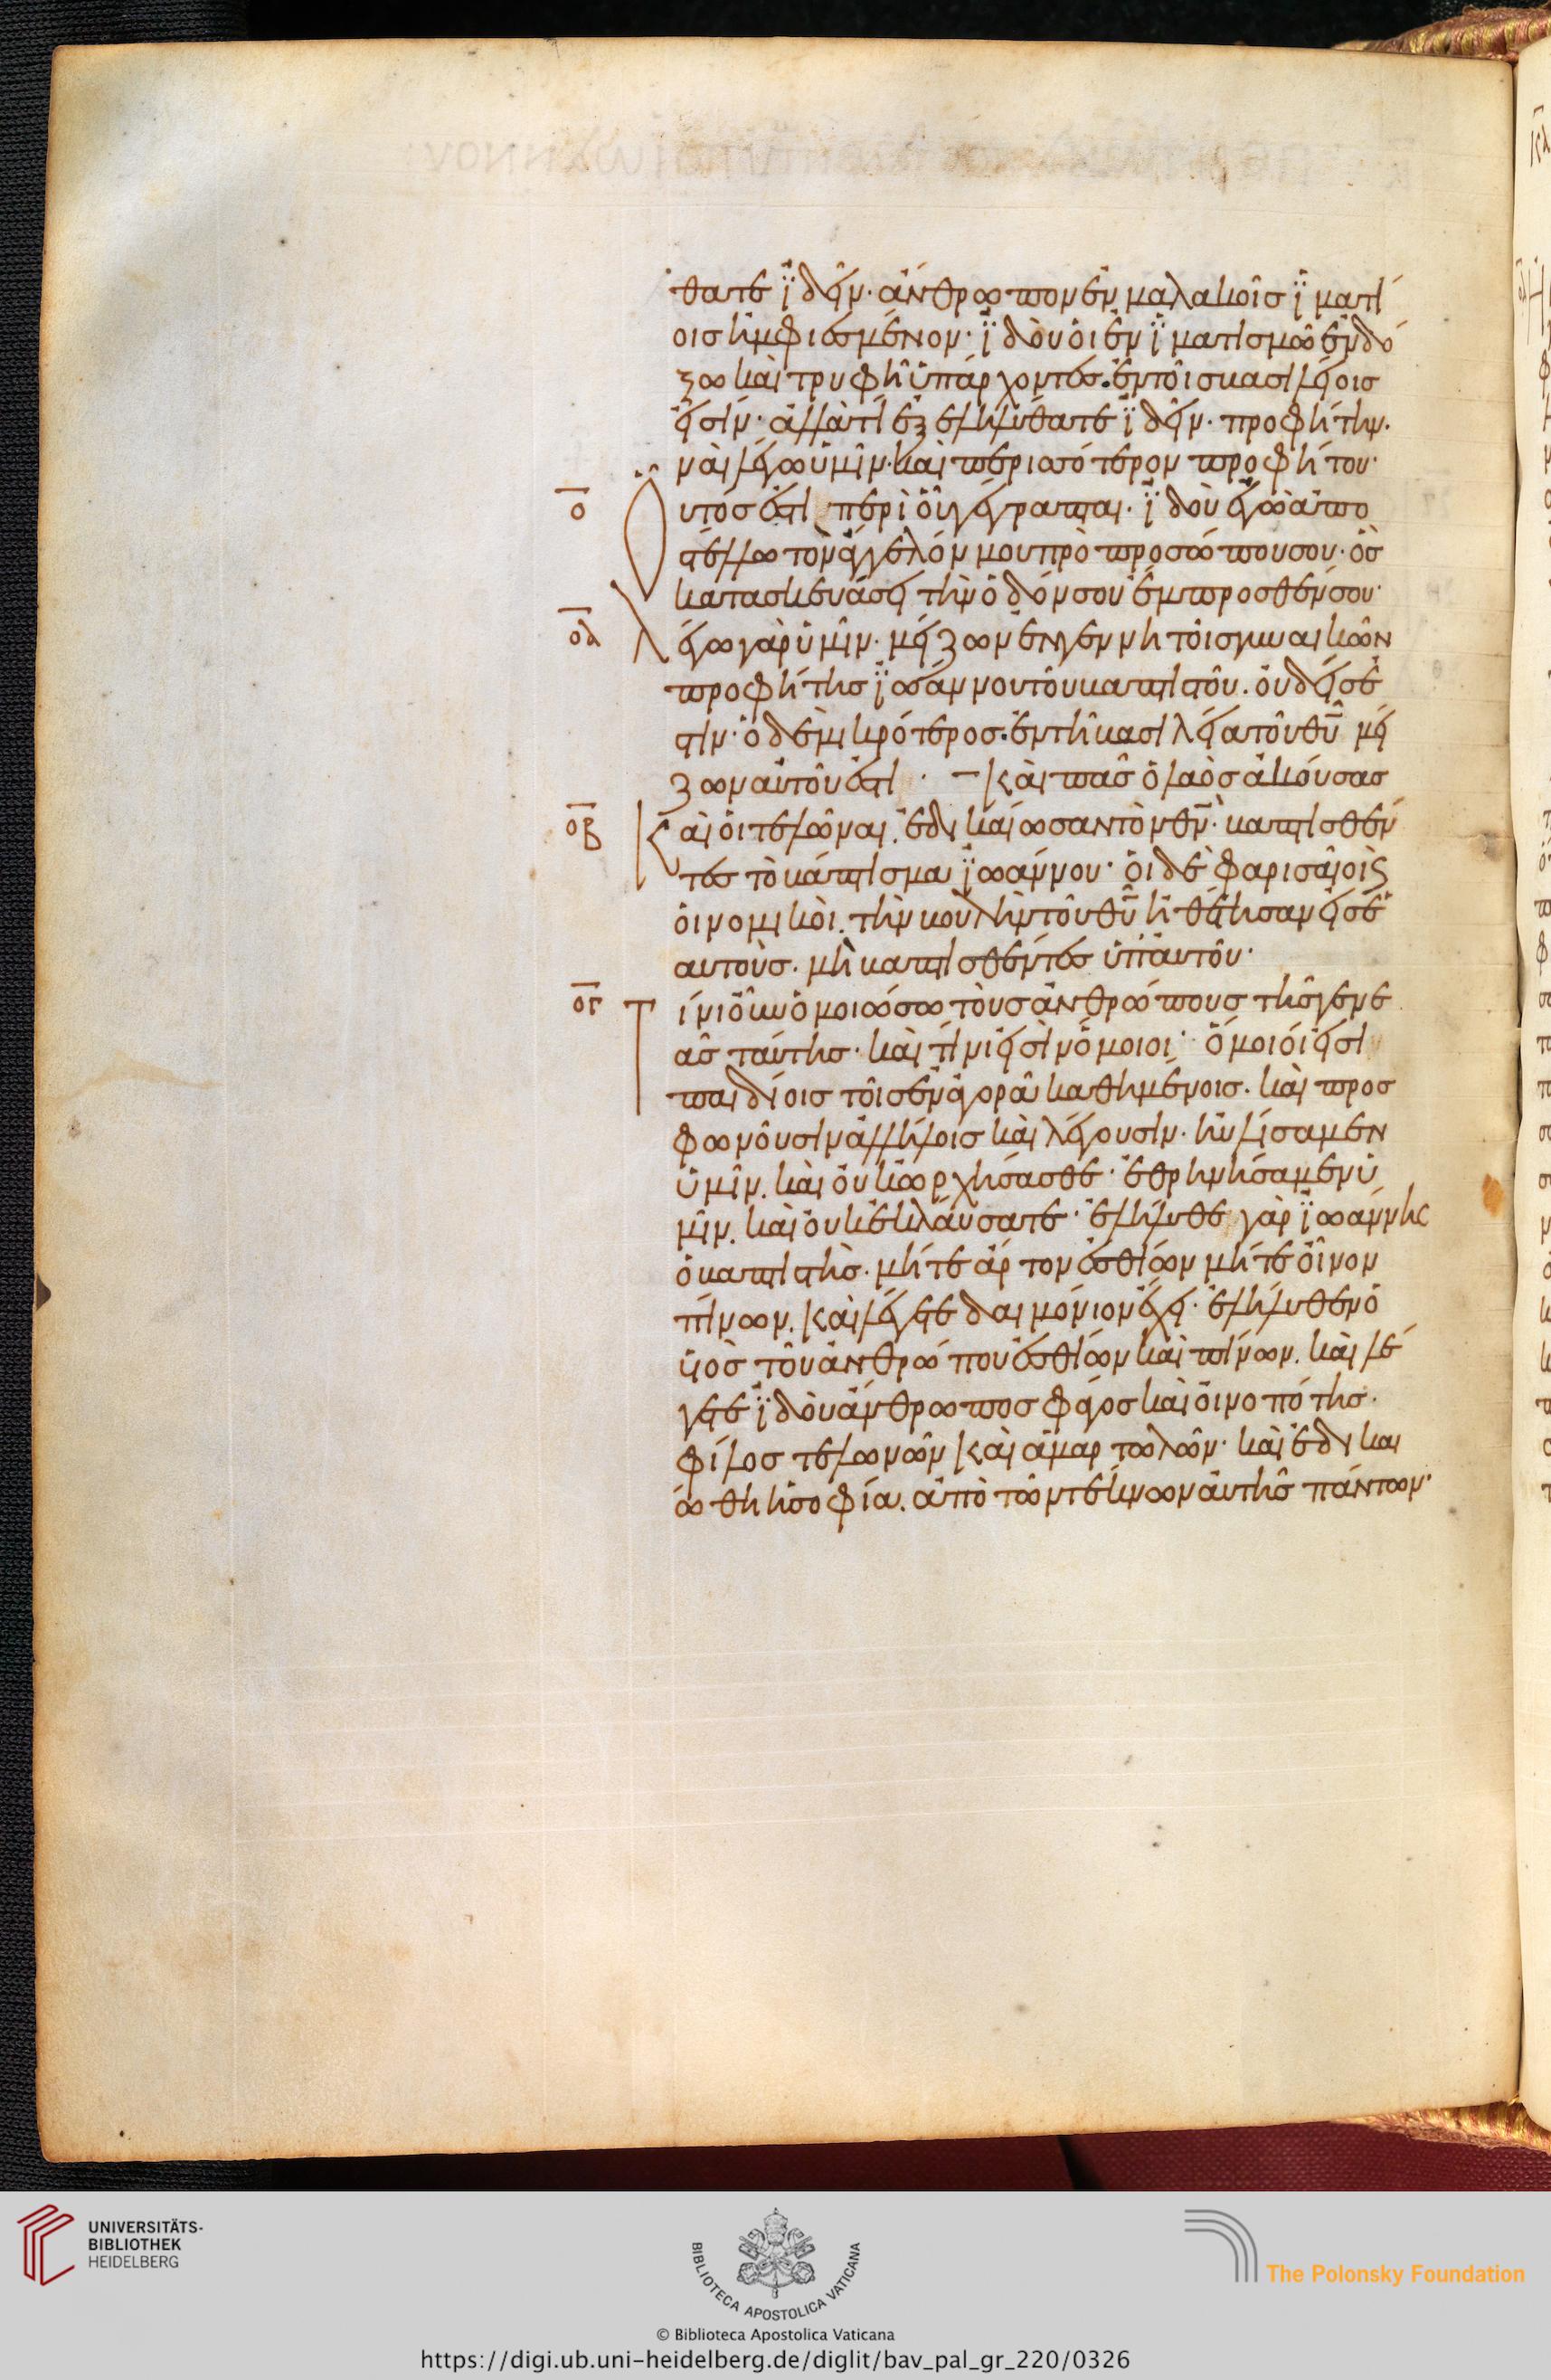 θατε ϊδεῖν· ἄνθρωπον ἐν μαλακοῖσ ϊματί
οισ ἠμφιεσμένον· ϊδοὺ οἱ ἐν ϊματισμῶ ἐνδό
ξω καὶ τρυφῆ ὑπάρχοντεσ. ἐν τοῖσ βασιλείοισ
εἰσίν· ἀλλὰ τί ἐξεληλύθατε ϊδεῖν· προφήτην.
ναὶ λέγω ὑμῖν· καὶ περισσότερον προφήτου·
ο̅ Οὗ
υτόσ ἐστι περὶ οὗ γέγραπται· ϊδοὺ ἐγὼ ἀπο
στέλλω τὸν ἄγγελόν μου πρὸ προσώπου σου· ὃσ
κατασκευάσει τὴν ὁδόν σου ἔμπροσθέν σου·
ο̅α̅ Λ
έγω γὰρ ὑμῖν· μείζων ἐν γεννητοῖσ γυναικῶν
προφήτησ ϊωάννου τοῦ βαπτιστοῦ. οὐδείσ ἐ
στιν· ὁ δὲ μικρότεροσ. ἐν τῆ βασιλεία τοῦ θ̅υ̅ μεί
ζων αὐτοῦ ἐστι · – Καὶ πᾶσ ὁ λαὸσ ἀκούσασ
ο̅β̅ Κ
αὶ οἱ τελῶναι. ἐδικαίωσαν τὸν θ̅ν̅· βαπτισθέν
τεσ τὸ βάπτισμα ϊωάννου· οἱ δὲ φαρισαῖοι ς
οἱ νομικοὶ. τὴν βουλὴν τοῦ θ̅υ̅ ἠθέτησαν εἰσ ἑ
αυτοὺσ. μὴ βαπτισθέντεσ ὑπ' αὐτοῦ·
ο̅γ̅ Τ
ίνι οὖν ὁμοιώσω τοὺσ ἀνθρώπουσ τῆσ γενε
ᾶσ ταύτησ· καὶ τίνι εἰσὶν ὅμοιοι· ὅμοιόι εἰσι
παιδίοισ τοῖσ ἐν ἀγορᾶ καθημένοισ. καὶ προσ
φωνοῦσιν ἀλλήλοισ καὶ λέγουσιν· ηὐλίσαμεν
ὑμῖν. καὶ οὐκ ὠρχήσασθε· ἐθρηνήσαμεν ὑ
μῖν. καὶ οὐκ ἐκλαύσατε· ἐλήλυθε γὰρ ϊωάννης
ὁ βαπτιστὴσ. μήτε ἄρτον ἐσθίων μήτε οἶνον
πίνων. Καὶ λέγετε δαιμόνιον ἔχει· ἐλήλυθεν ὁ
υἱὸσ τοῦ ἀνθρώπου ἐσθίων καὶ πίνων. καὶ λέ
γετε ϊδοὺ ἄνθρωποσ φάγοσ καὶ οἰνοπότησ·
φίλοσ τελωνῶν Καὶ ἁμαρτωλῶν· καὶ ἐδικαι
ώθη ἡ σοφία. ἀπὸ τῶν τέκνων αὐτῆσ πάντων·
UNIVERSITÄTS-
BIBLIOTHEK
HEIDELBERG
BIBLIOTECA APOSTOLICA VATICANA
The Polonsky Foundation
© Biblioteca Apostolica Vaticana
https://digi.ub.uni-heidelberg.de/diglit/bav_pal_gr_220/0326